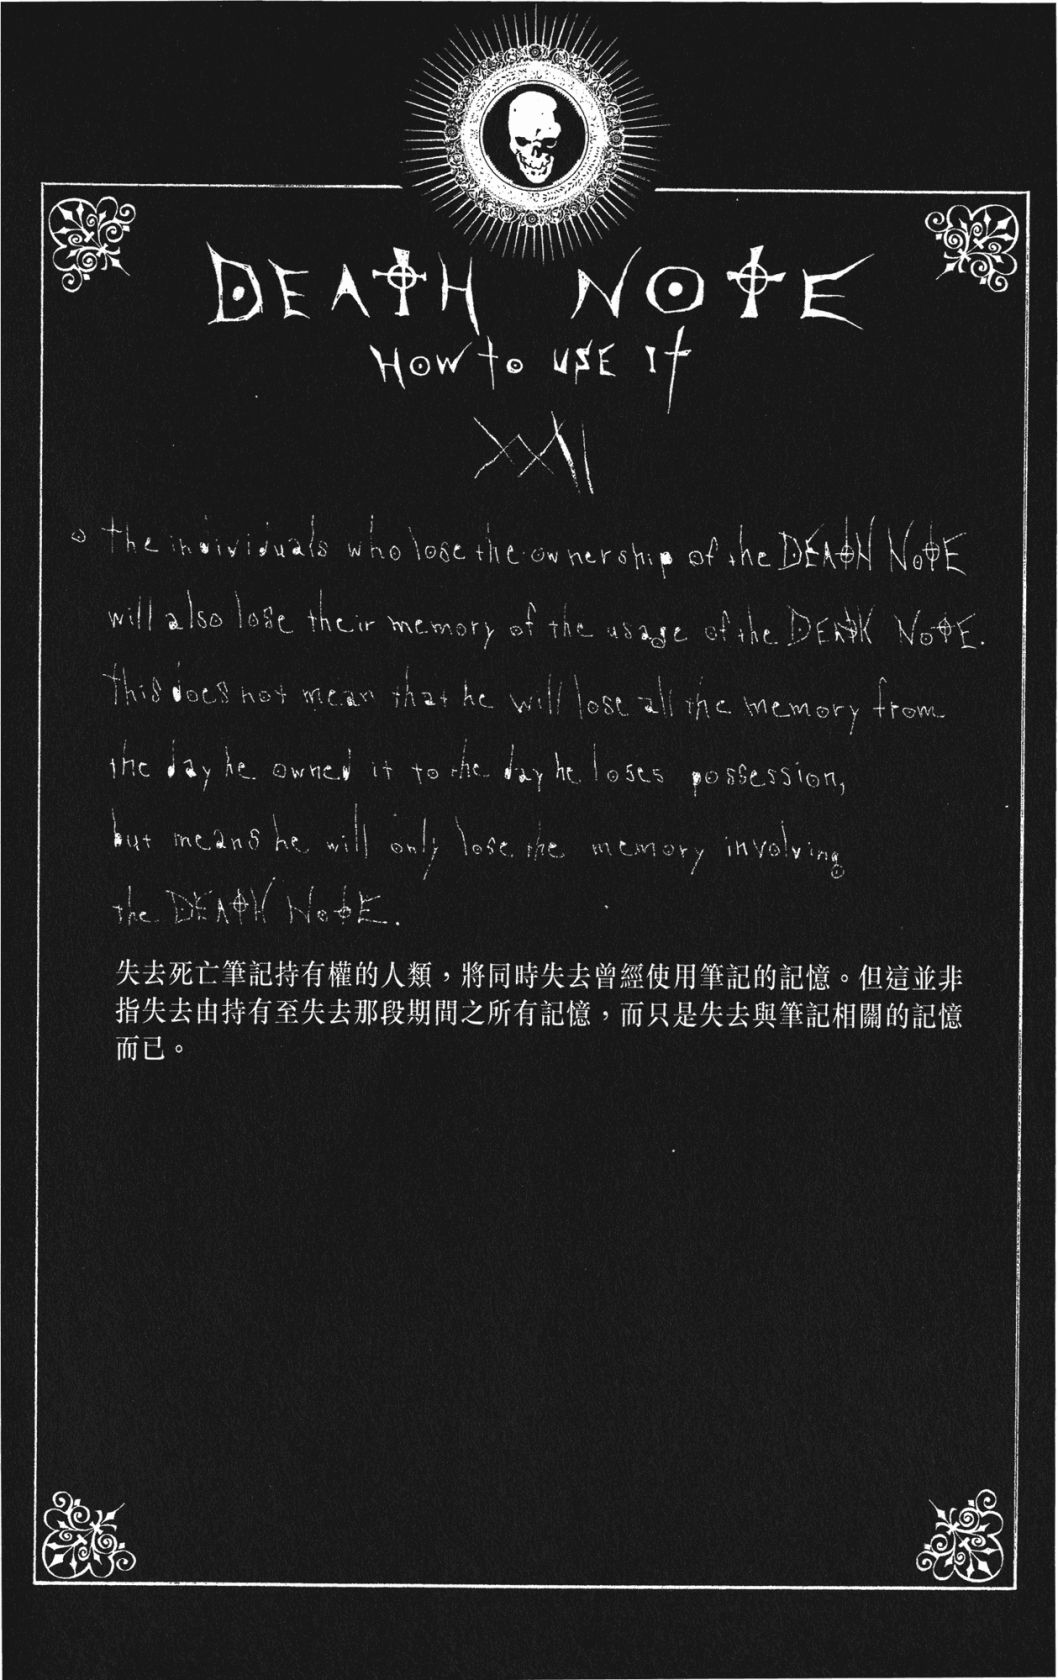 DEATH NOTE
HOW to USE It
XXII
the individuals who lose the ownership of the DEATH NOTE
will also lose their memory of the usage of the DEATH NOTE.
This does not mean that he will lose all the memory from
the day he owned it to the day he loses possession,
but means he will only lose the memory involving
the DEATH NOTE.
失去死亡筆記持有權的人類，將同時失去曾經使用筆記的記憶。但這並非
指失去由持有至失去那段期間之所有記憶，而只是失去與筆記相關的記憶
而已。